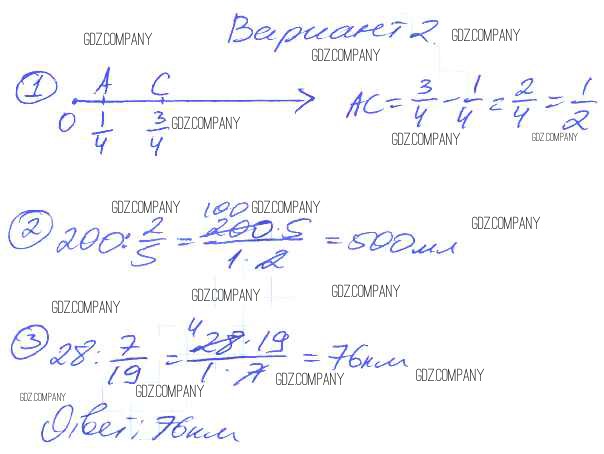 Вариант 2.
GDZ.COMPANY GDZ.COMPANY GDZ.COMPANY
① A C AC = 3/4 - 1/4 = 2/4 = 1/2
0 1/4 3/4 GDZ.COMPANY GDZ.COMPANY GDZ.COMPANY
GDZ.COMPANY GDZ.COMPANY GDZ.COMPANY
100
② 200 : 2/5 = 200·5/1·2 = 500 мл
GDZ.COMPANY GDZ.COMPANY GDZ.COMPANY
4
③ 28 : 7/19 = 28·19/1·7 = 76 км
GDZ.COMPANY GDZ.COMPANY GDZ.COMPANY GDZ.COMPANY
Ответ: 76 км